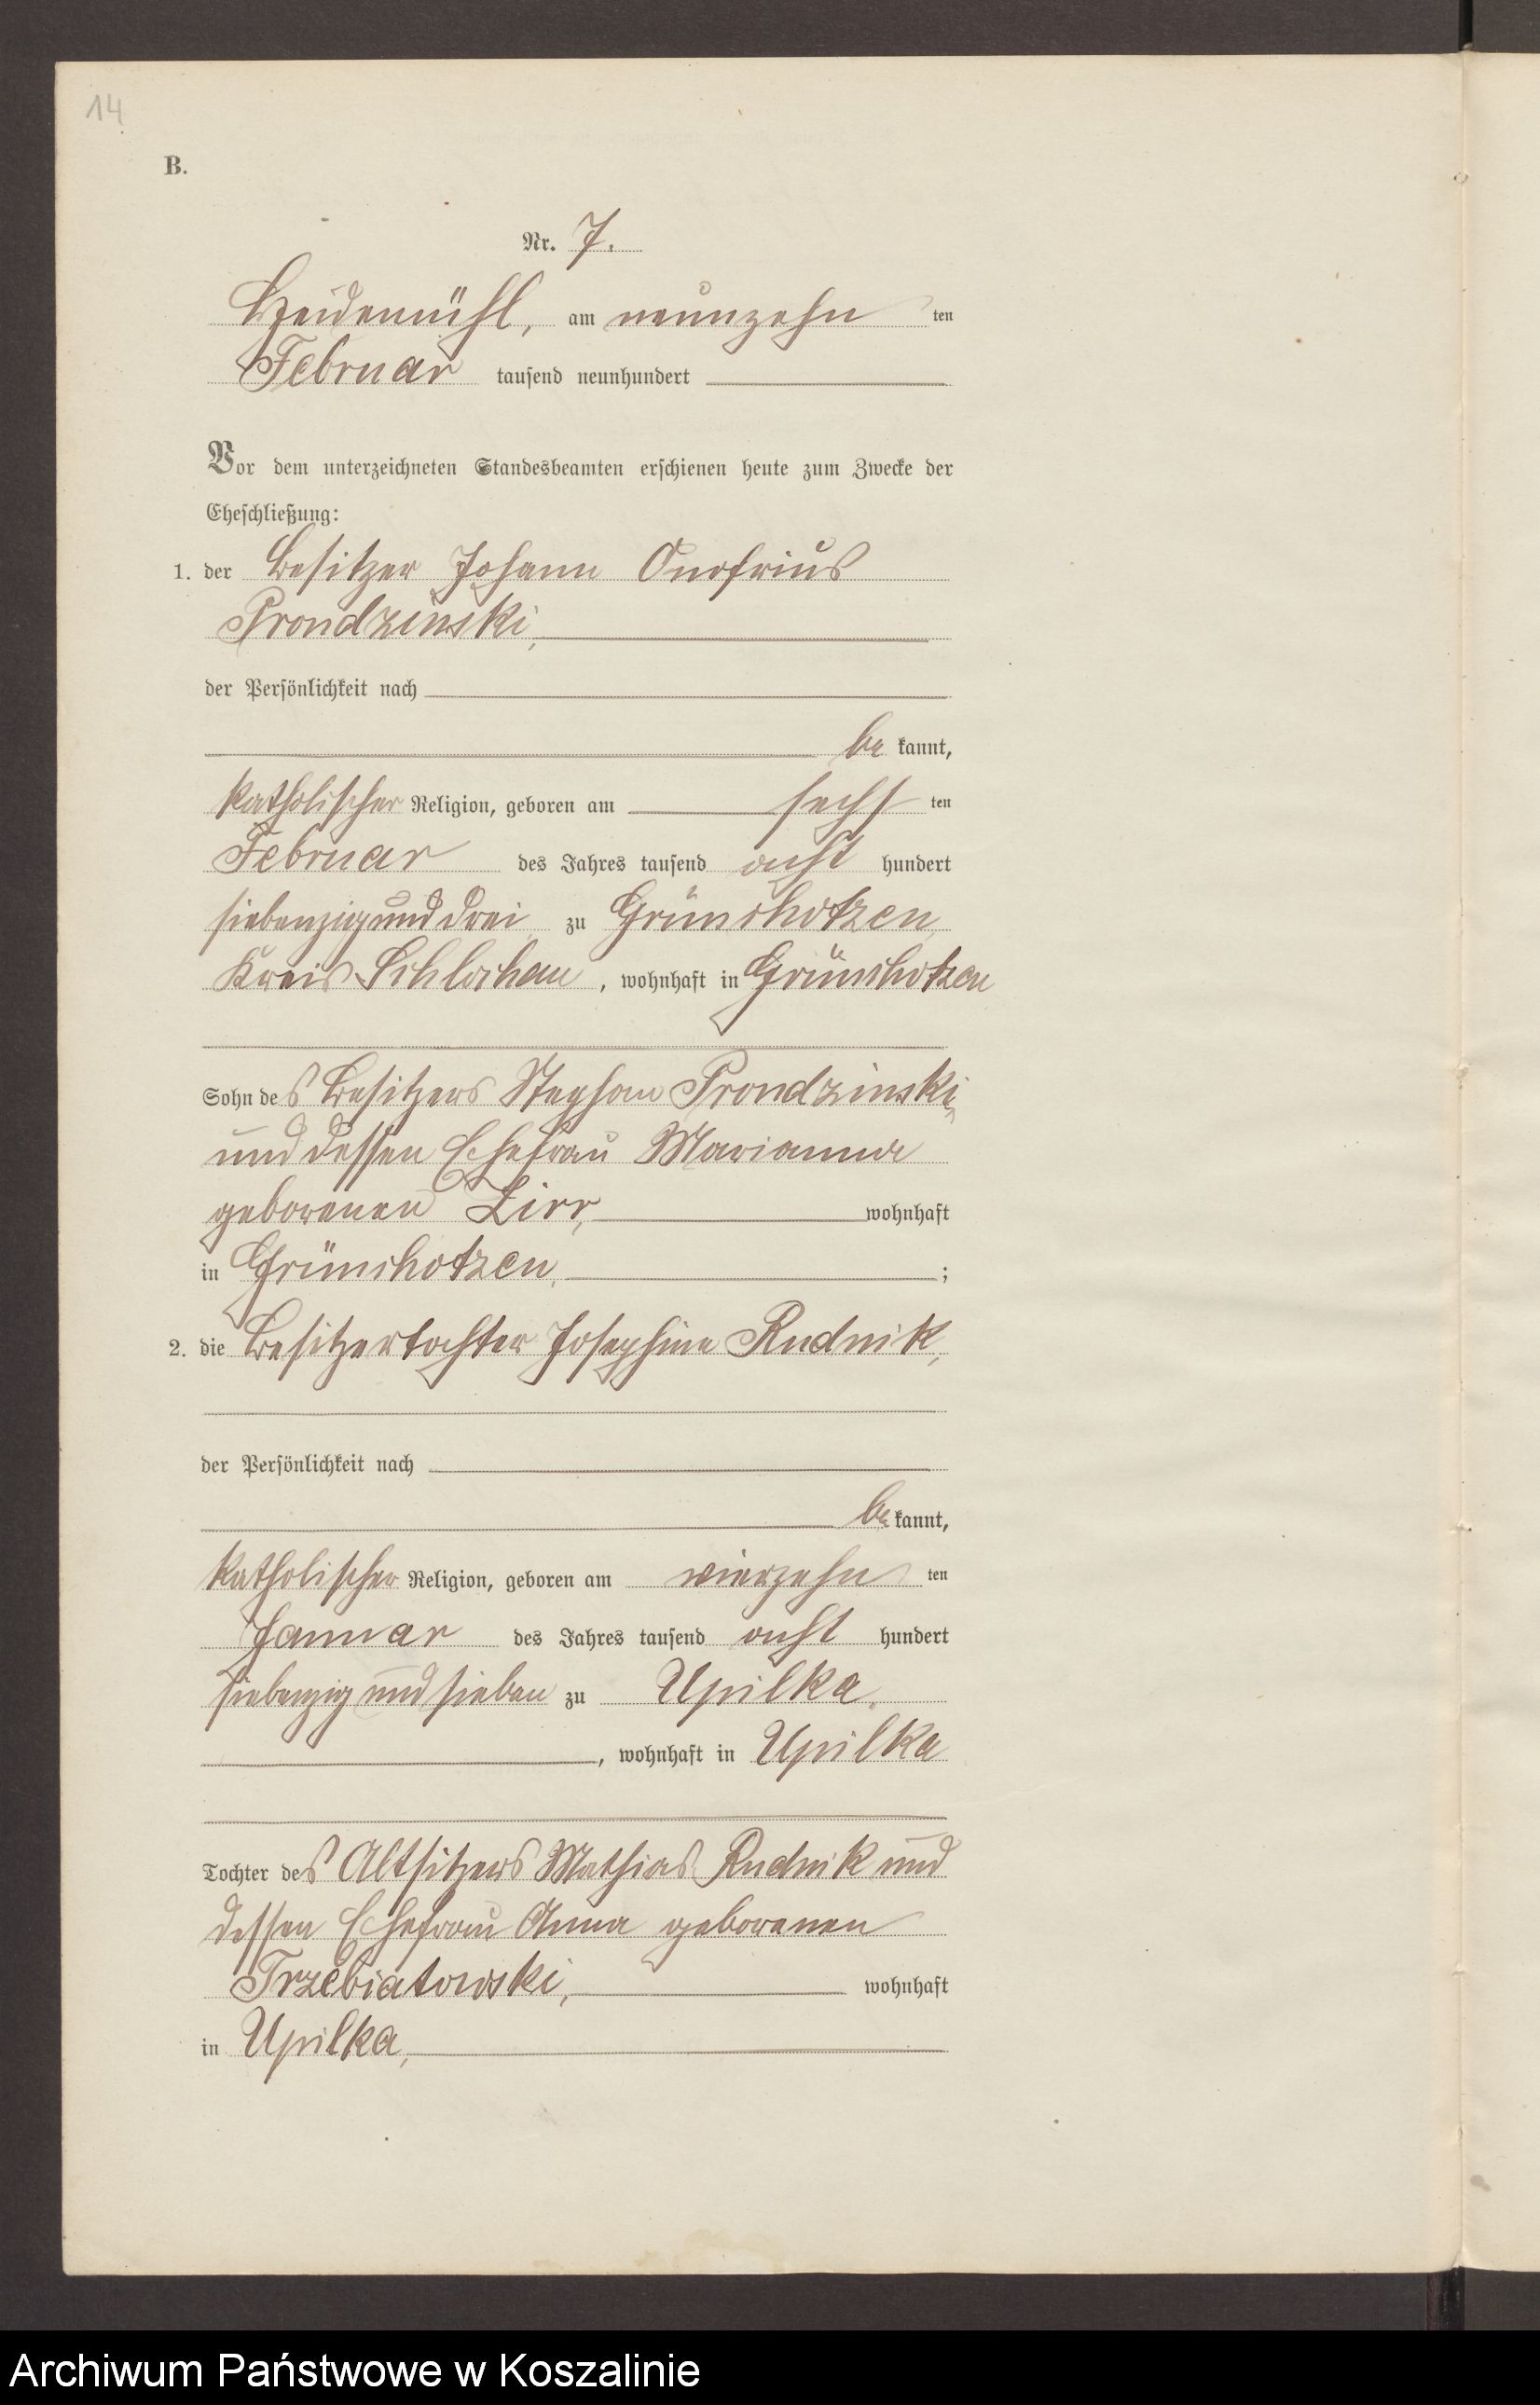 14
B.
Nr. 7.
Heidemühl, am neunzehn ten
Februar tausend neunhundert
Vor dem unterzeichneten Standesbeamten erschienen heute zum Zwecke der
Eheschließung:
1. der Besitzer Johann Onofrius
Prondzinski,
der Persönlichkeit nach
be kannt,
katholischer Religion, geboren am sechs ten
Februar des Jahres tausend acht hundert
siebenzig und drei zu Grünchotzen,
Kreis Schlochau, wohnhaft in Grünchotzen
Sohn des Besitzers Stephan Prondzinski,
und dessen Ehefrau Marianna
geborenen Lirr, wohnhaft
in Grünchotzen, ;
2. die Besitzertochter Josephine Rudnik,
der Persönlichkeit nach
be kannt,
katholischer Religion, geboren am vierzehn ten
Januar des Jahres tausend acht hundert
siebenzig und sieben zu Upilka,
, wohnhaft in Upilka
Tochter des Altsitzers Mathias Rudnik und
dessen Ehefrau Anna geborenen
Trzebiatowski, wohnhaft
in Upilka,
Archiwum Państwowe w Koszalinie